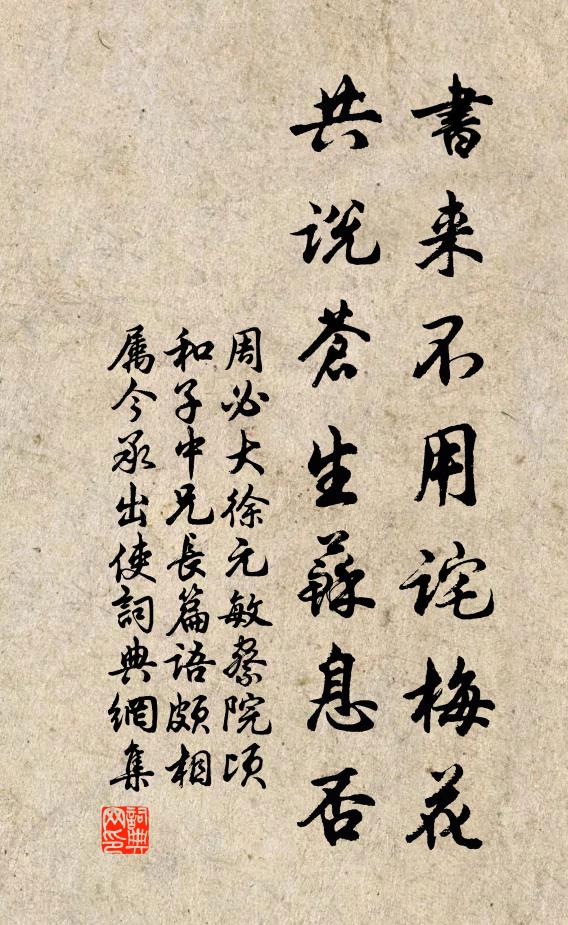 書来不用詫梅花
共説蒼生蘇息否
周必大徐元敏察院頃
和子中兄長篇語頗相
属今承出使詞典網集
詞典网印